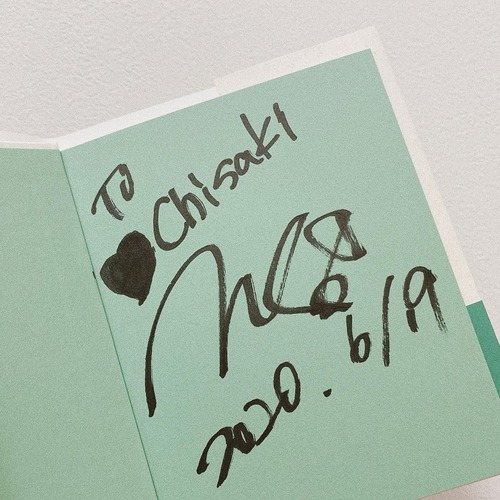 To
Chisaki
2020. 6/19